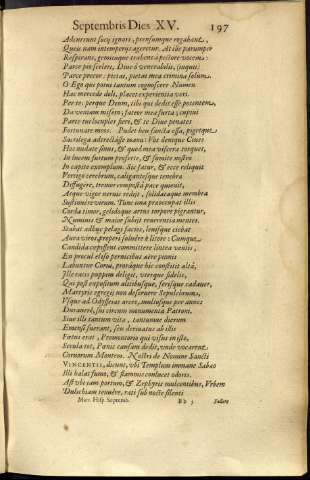 Septembris Dies XV. 197
Adcurrunt socij ignari, prensumque rogabant,
Queis nam intemperijs ageretur. At ille parumper
Respirans, grauisque trahens à pectore vocem:
Parce profelere, Diuo ô venerandus, (inquit)
Parce precor: pietas, pietas mea crimina solum.
O Ego qui potui tantum cognoscere Numen
Hac mercede doli, placet experientia veri.
Per te: perque Deum, illi qui dedit esse potentem,
Da veniam misero; fateor mea furta; capini
Parte tui luctus fieri, & te Diue penates
Fortunare meos. Pudet heu sancta ossa, pigetque
Sacrilega adtrectasse manu: Vos denique Cives
Hoc nudate sinus, & quod mea viscera torquet,
In lucem furtum proferte, & sumite mystro
In capso exemplum. Sic fatur, & ecce reliquit
Vertigo cerebrum, caligantesque tenebra
Diffugere, tremor compostâ pace quieuit,
Atque vigor neruis redijt, solidataque membra
Sustinuere virum. Tunc una praeoccupat illi
Corda timor, gelidoque artus torpore pigrantur,
Numinis & maior subijt reuerentia mentes.
Stabat adhuc pelagi facies, lenisque ciebat
Aura viros properi soluere è litore: Cumque
Candida cepissent committere lintea ventis,
En procul eliso pernicibus aëre pennis
Labuntur Corui, proràque hic constitit altâ,
Ille ratis puppem delegit, vterque fidelis,
Qui post expositum altilibusque, ferisque cadauer,
Martyris egregij non deseruere Sepulchrum,
Vsque ad Odysseas arces, multùsque per annos
Durauere, sui circum monumenta Patroni.
Siue illis tantum vita, tantumue dierum
Emensi fuerant, seu deriuatus ab illis
Fœtus erat; Promontorio qui visus in isto,
Secula tot, Panis causam dedit, vnde vocarent
Coruorum Montem. Nostri de Nomine Sancti
VINCENTII, dicunt, vbi Templum immane Sabæo
Illi halat fumo, & flammis conlucet odoris.
Ast vbi tam portum, & Zephyris mulcentibus, Vrbem
Dulichiam tenuêre, rati sub nocte silenti
Mart. Hisp. Septemb. Bb 3 Fallere